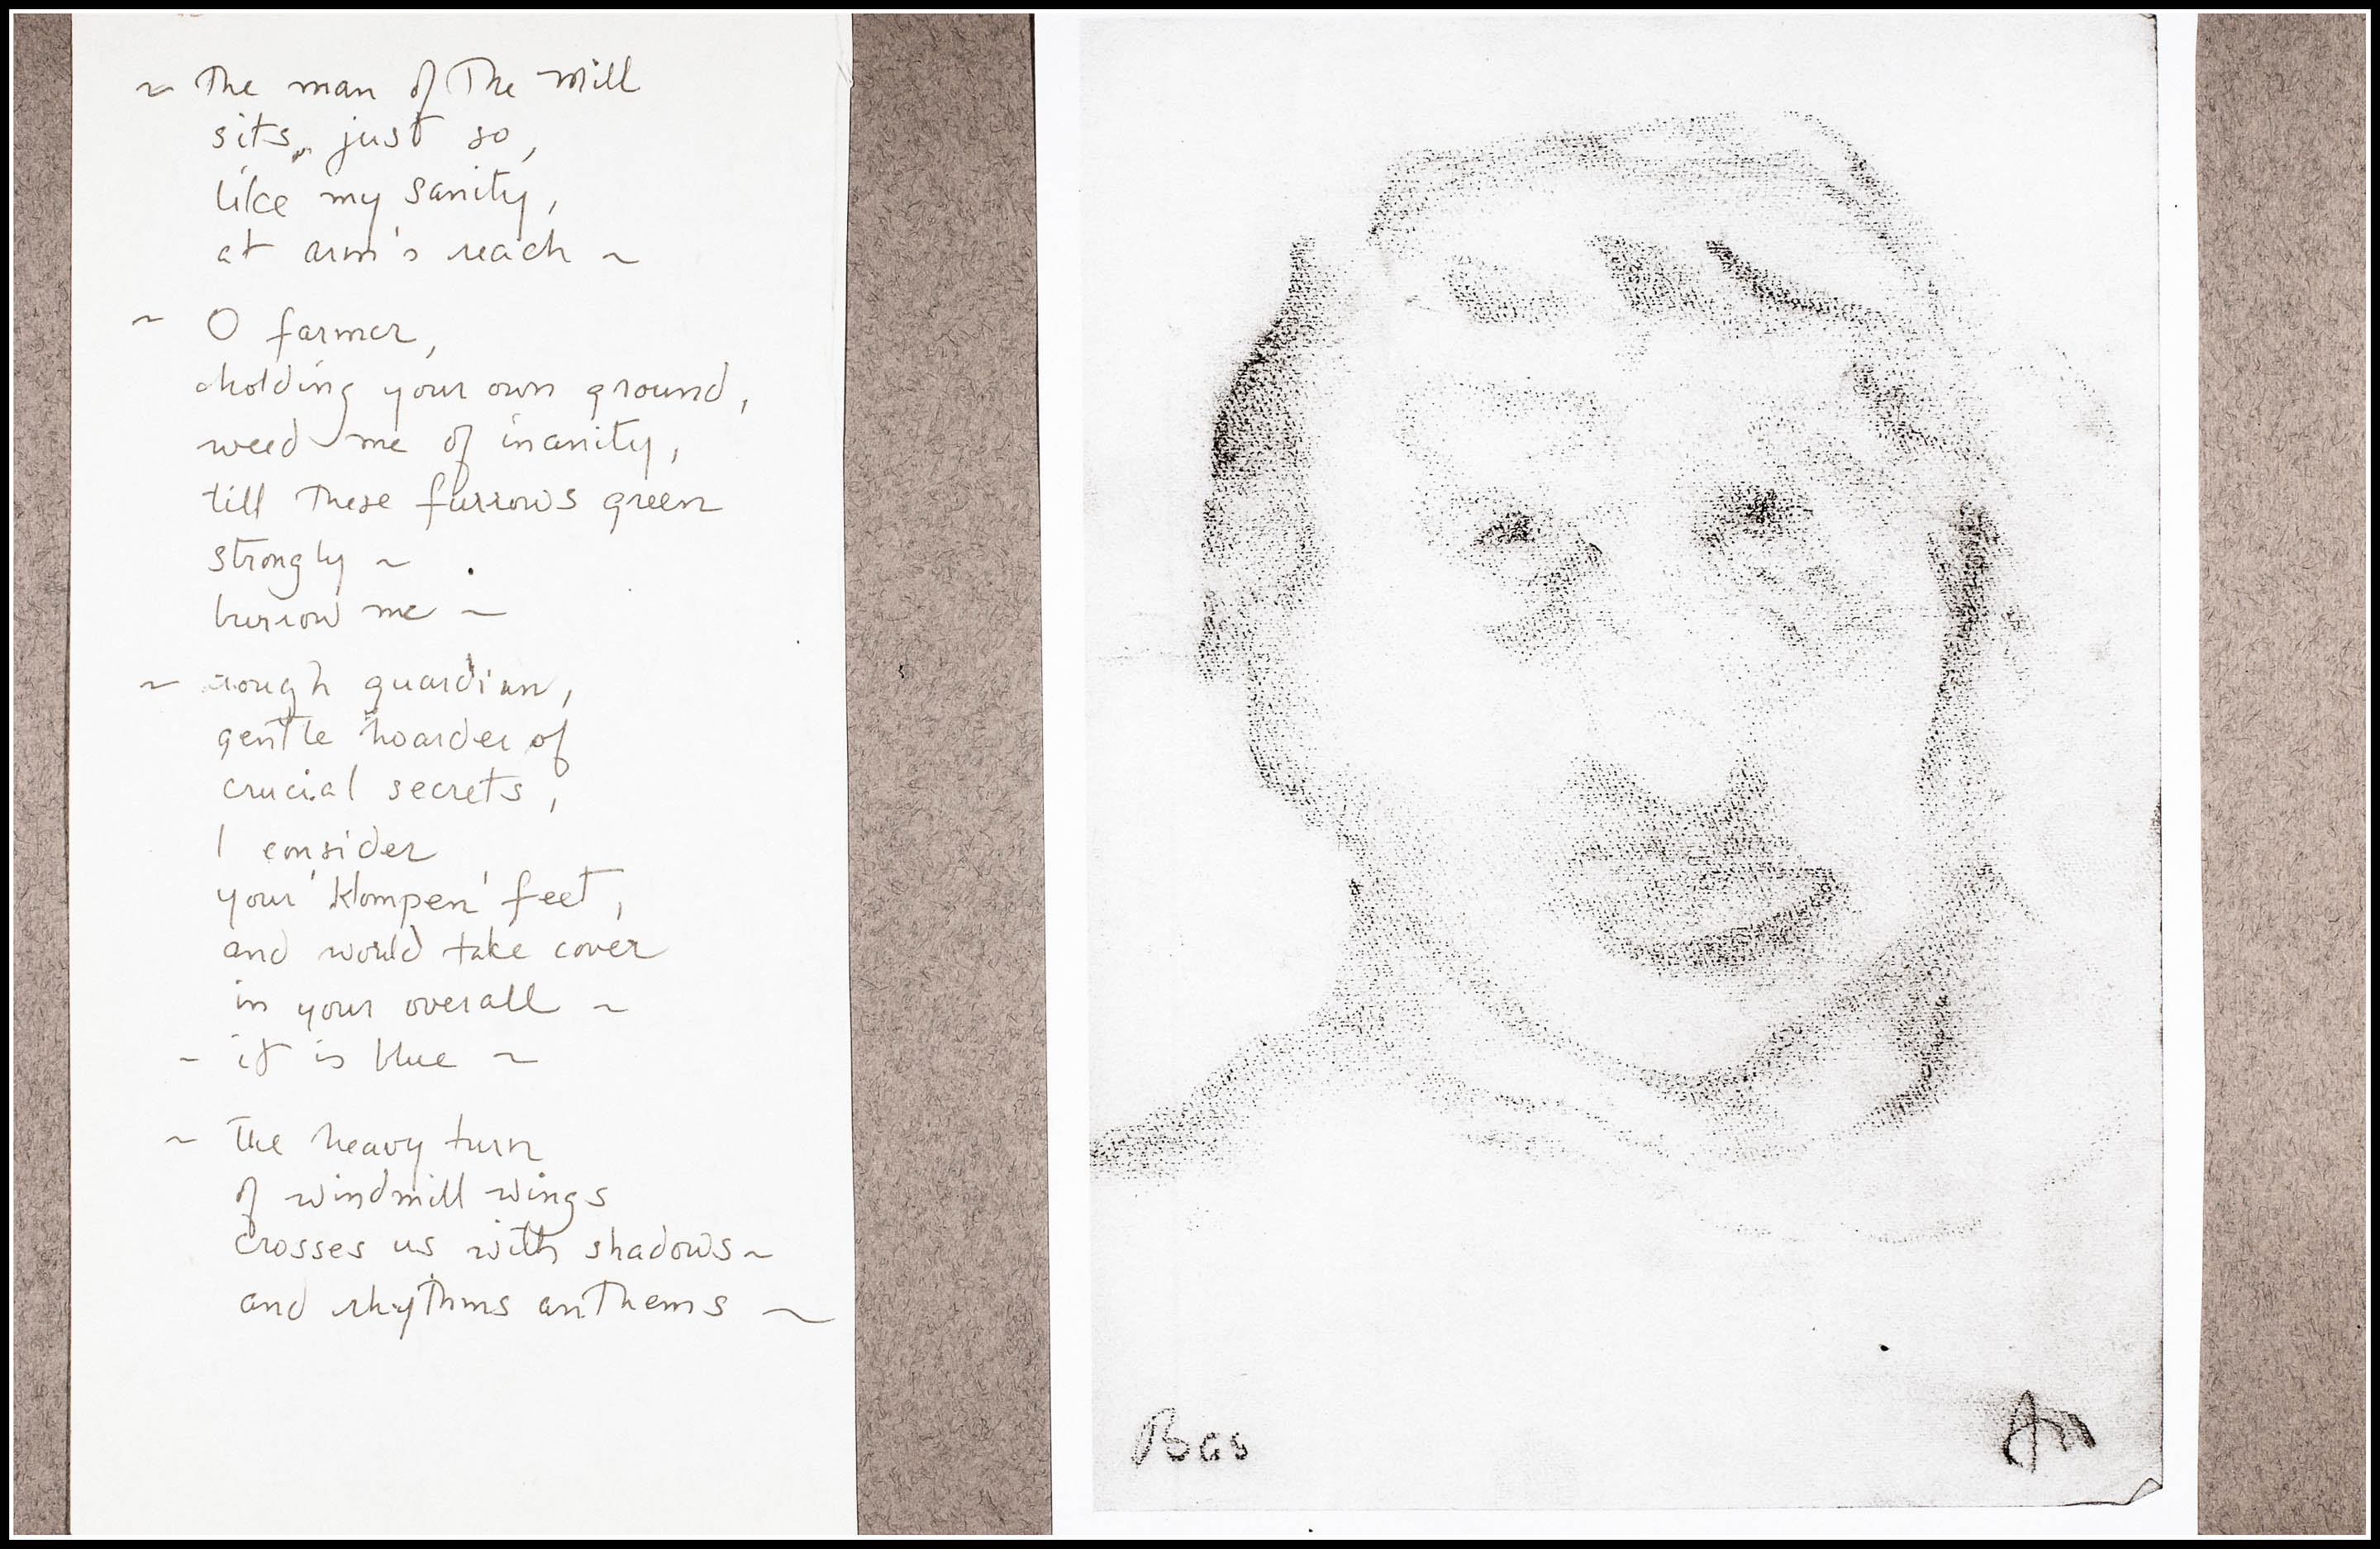 ~ The man of The Mill
sits, just so,
like my sanity,
at arm's reach ~
~ O farmer,
holding your own ground,
weed me of insanity,
till these furrows green
strongly ~
burrow me ~
~ rough guardian,
gentle hoarder of
crucial secrets,
I consider
your 'klompen' feet,
and would take cover
in your overall ~
~ it is blue ~
~ the heavy turn
of windmill wings
crosses us with shadows ~
and rhythms anthems ~
Bas